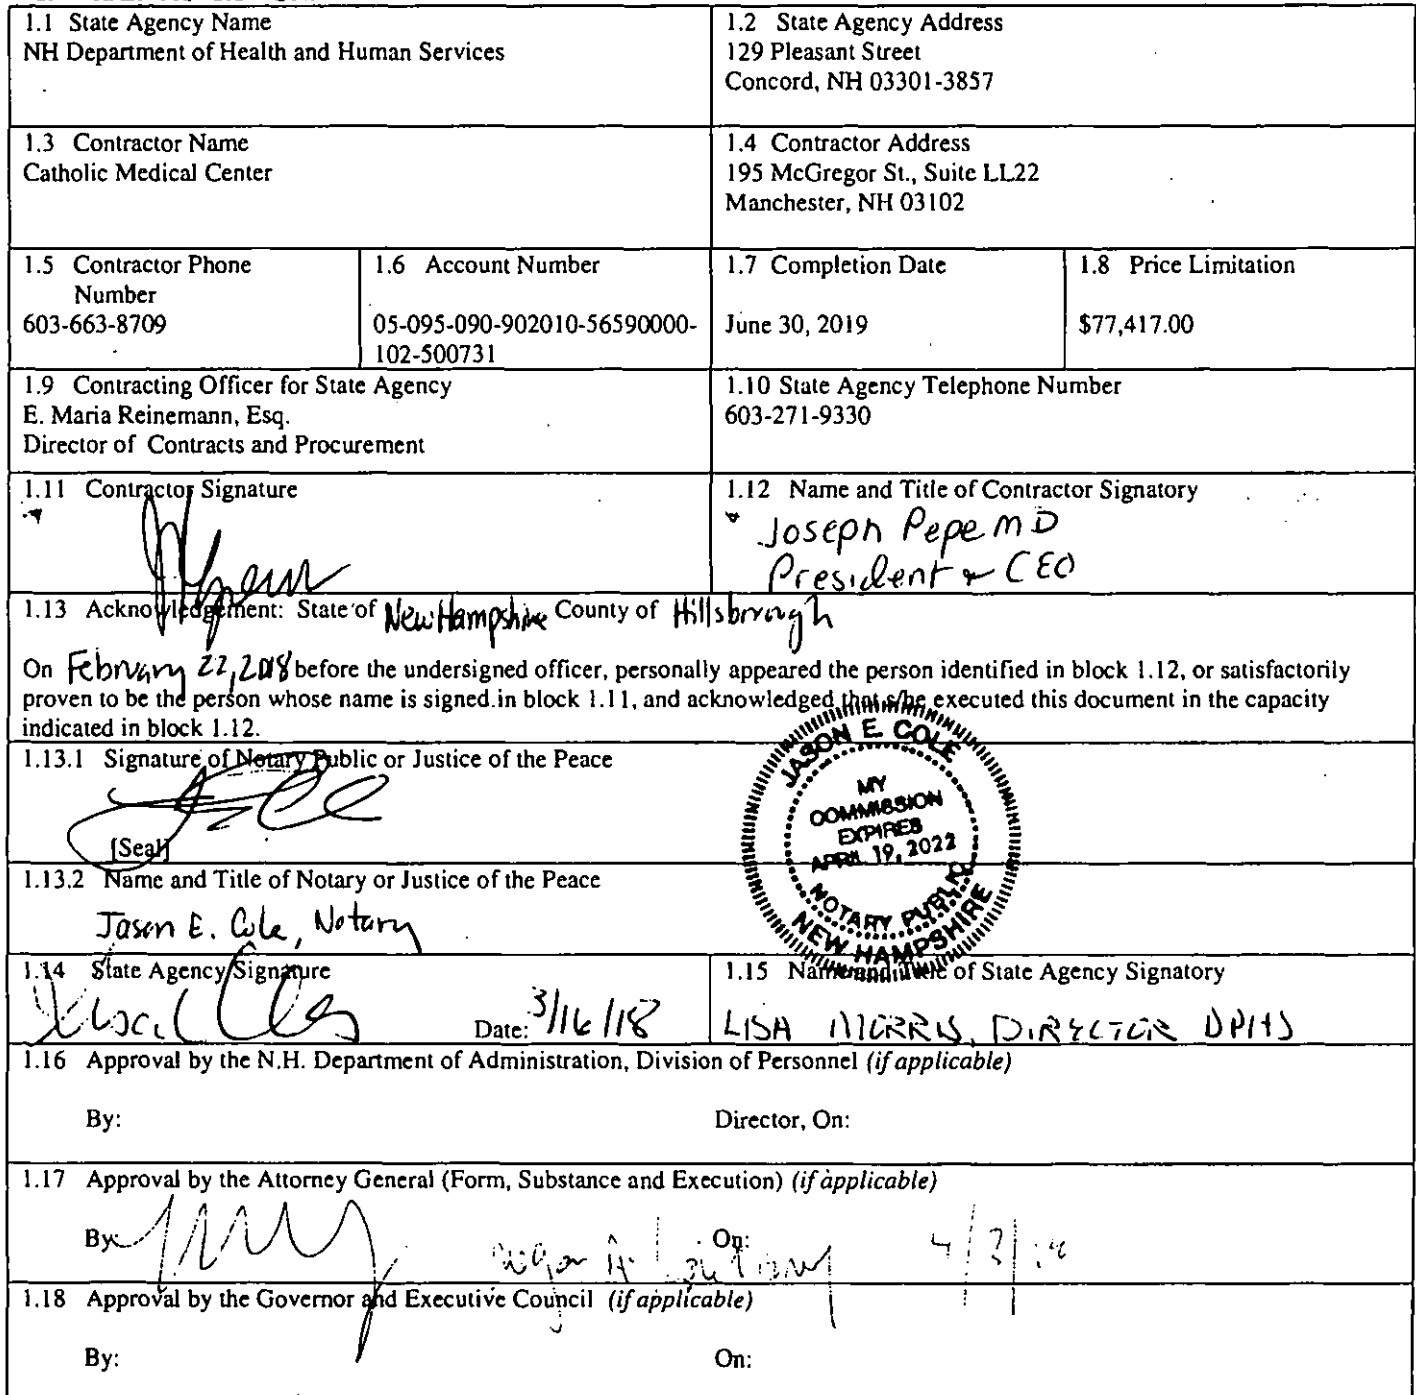 1.1 State Agency Name
NH Department of Health and Human Services
1.2 State Agency Address
129 Pleasant Street
Concord, NH 03301-3857
1.3 Contractor Name
Catholic Medical Center
1.4 Contractor Address
195 McGregor St., Suite LL22
Manchester, NH 03102
1.5 Contractor Phone
Number
603-663-8709
1.6 Account Number
05-095-090-902010-56590000-
102-500731
1.7 Completion Date
June 30, 2019
1.8 Price Limitation
$77,417.00
1.9 Contracting Officer for State Agency
E. Maria Reinemann, Esq.
Director of Contracts and Procurement
1.10 State Agency Telephone Number
603-271-9330
1.11 Contractor Signature
1.12 Name and Title of Contractor Signatory
Joseph Pepe MD
President & CEO
1.13 Acknowledgement: State of New Hampshire County of Hillsborough
On February 22, 2018 before the undersigned officer, personally appeared the person identified in block 1.12, or satisfactorily
proven to be the person whose name is signed in block 1.11, and acknowledged that s/he executed this document in the capacity
indicated in block 1.12.
1.13.1 Signature of Notary Public or Justice of the Peace
[Seal]
JASON E. COLE
MY
COMMISSION
EXPIRES
APRIL 19, 2022
NOTARY PUBLIC
NEW HAMPSHIRE
1.13.2 Name and Title of Notary or Justice of the Peace
Jason E. Cole, Notary
1.14 State Agency Signature
Date: 3/16/18
1.15 Name and Title of State Agency Signatory
LISA MORRIS, DIRECTOR DPHS
1.16 Approval by the N.H. Department of Administration, Division of Personnel (if applicable)
By:
Director, On:
1.17 Approval by the Attorney General (Form, Substance and Execution) (if applicable)
By:
On:
1.18 Approval by the Governor and Executive Council (if applicable)
By:
On: